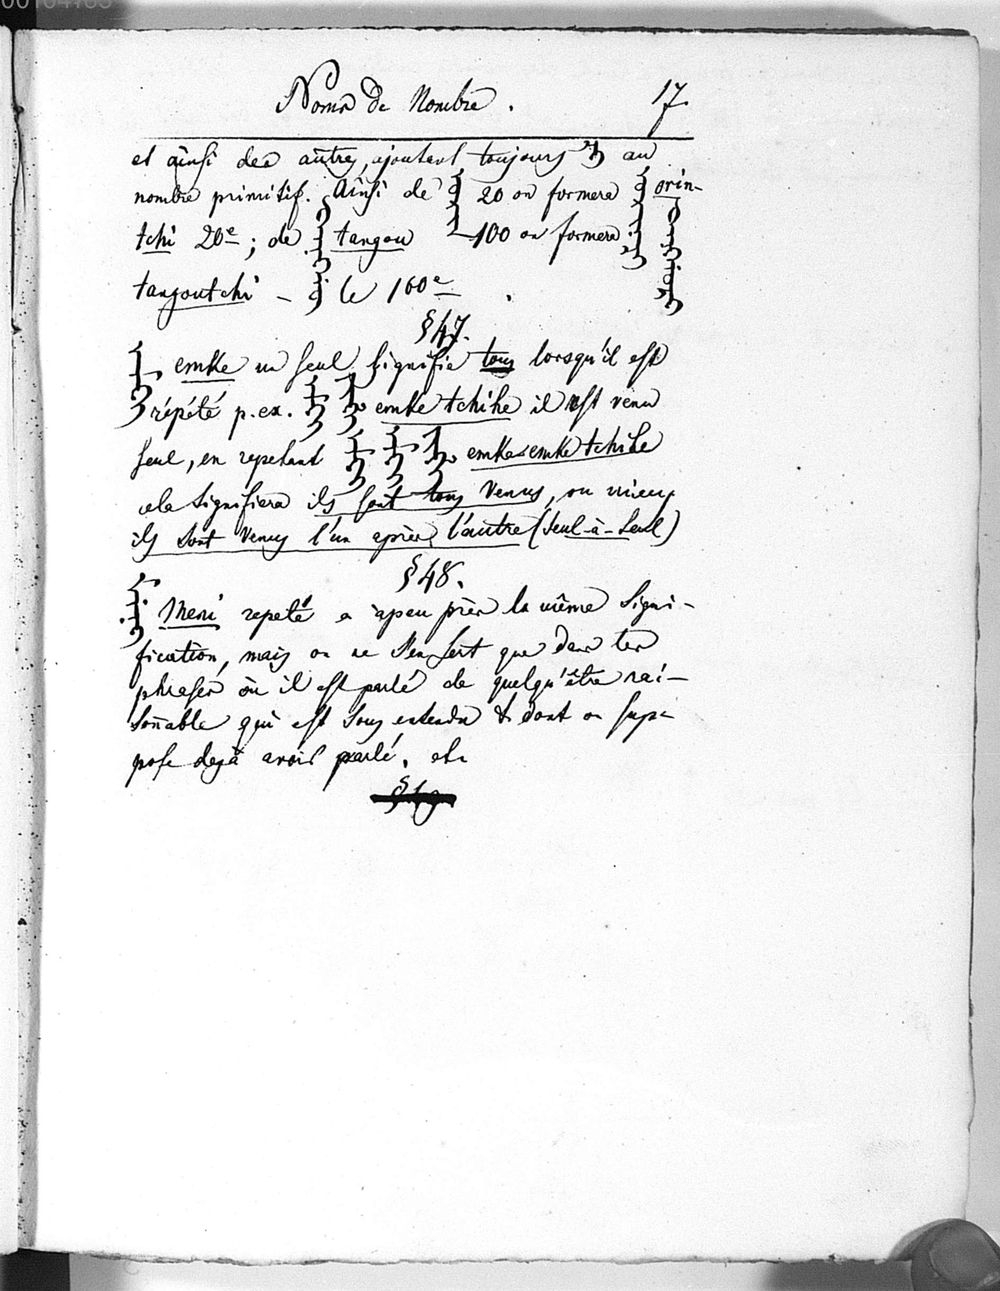 Noms de Nombre. 17
et ainsi des autres, ajoutant toujours au
nombre primitif. Ainsi de 20 on formera orin-
tchi 20e; de tangou 100 on formera
tangoutchi – le 100e
§47.
emke un seul signifie tous lorsqu'il est
répété p. ex. emke tchihe il est venu
seul, en repetant emke emke tchihe
cela signifiera ils sont tous venus, ou mieux
ils sont venus l'un après l'autre (seul-à-seul)
§48.
Meni repeté a àpeu près la même signi-
fication, mais on ne s'en sert que dans les
phrases où il est parlé de quelqu'être rai-
soñable qui est sous entendu & dont on sup-
pose dejà avoir parlé. etc
§49